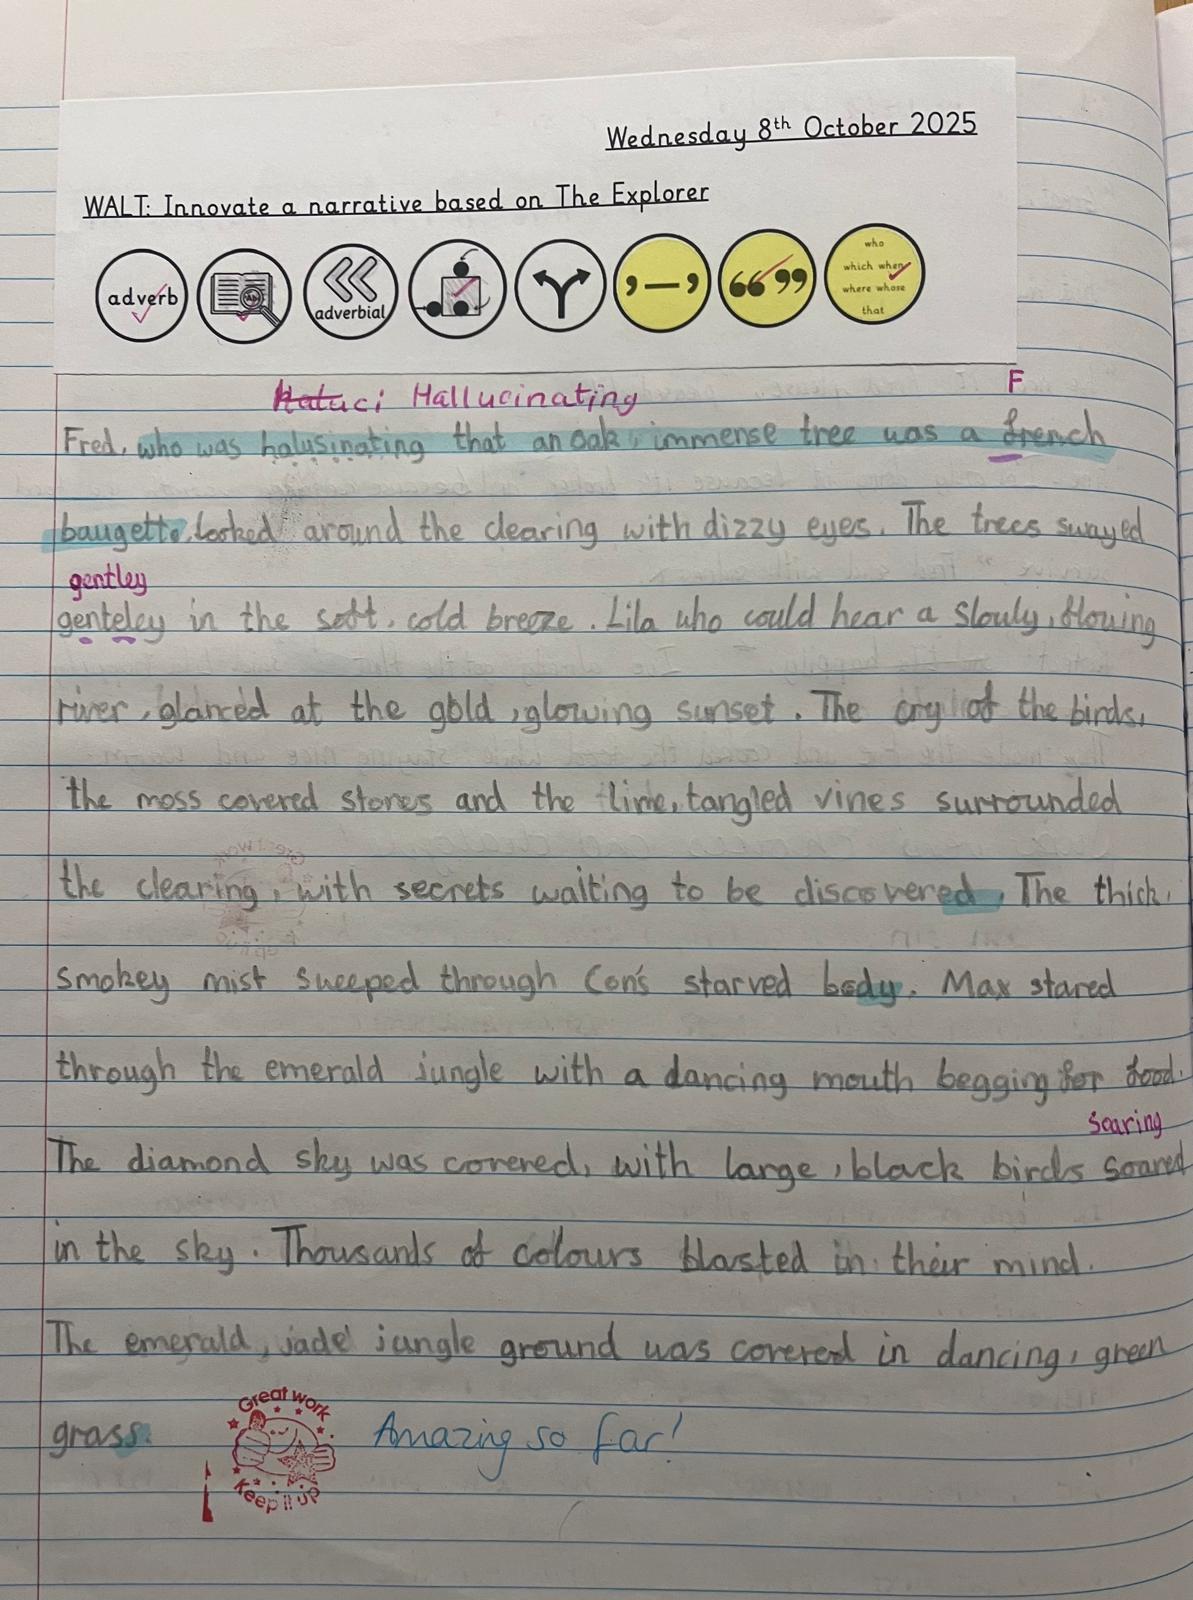 Wednesday 8th October 2025
WALT: Innovate a narrative based on The Explorer
adverb
adverbial
, — ,
“ ”
who
which when
where whose
that
Haluci Hallucinating
F
Fred, who was halusinating that an oak, immense tree was a french
baugette, looked around the clearing with dizzy eyes. The trees swayed
gentley
genteley in the soft, cold breeze. Lila who could hear a slowly, flowing
river, glanced at the gold, glowing sunset. The cry of the birds,
the moss covered stones and the lime, tangled vines surrounded
the clearing, with secrets waiting to be discovered. The thick,
smokey mist sweeped through Con's starved body. Max stared
through the emerald jungle with a dancing mouth begging for food.
soaring
The diamond sky was covered, with large, black birds soared
in the sky. Thousands of colours blasted in their mind.
The emerald, jade jungle ground was covered in dancing, green
grass.
Great work
Keep it up
Amazing so far!